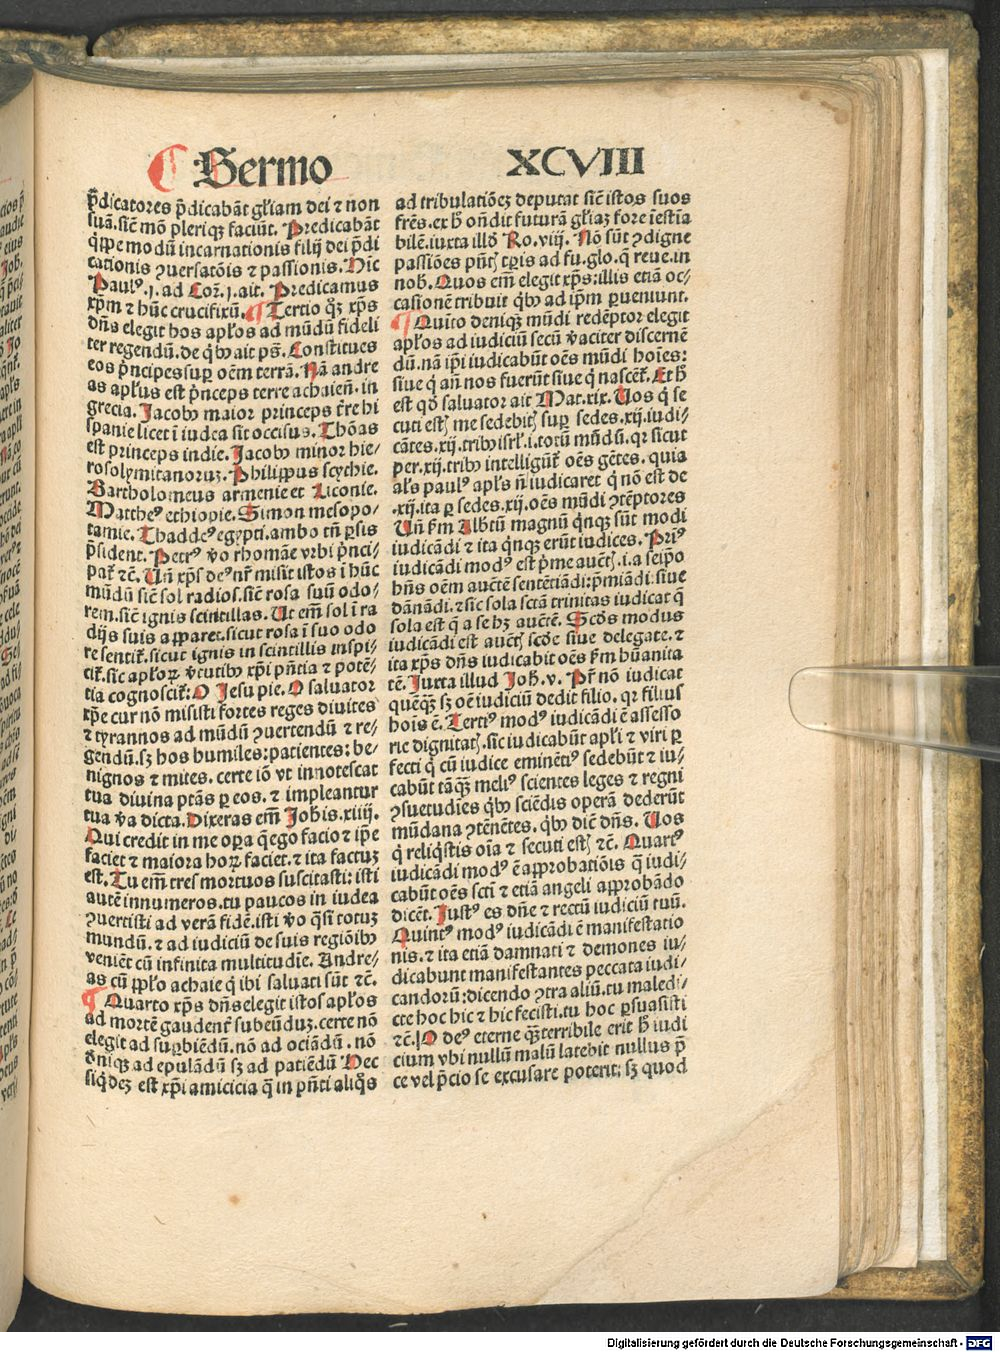 Sermo XCVIII
p̄dicatores p̄dicabāt gl̄iam dei ⁊ non
suā. sic̄ mō pleriqꝫ faciūt. Predicabāt
q̄ꝫpe modū incarnationis filij dei p̄di
cationis ꝯuersatōis ⁊ passionis. Hic
Paulꝰ .j. ad Coꝝ .j. ait. Predicamus
xp̄m ⁊ hūc crucifixū. ¶ Tertio qꝫ xp̄s
dn̄s elegit hos apl̄os ad mūdū fideli
ter regendū. de qͥbꝰ ait ps̄. Constitues
eos p̄ncipes suꝑ oēm terrā. Nā andre
as apl̄us est p̄nceps terre achaien̄. in
grecia. Jacobꝰ maior princeps t̄re hi
spanie licet ī iudea sit occisus. Thōas
est princeps indie. Jacobꝰ minor hie-
rosolymitanorū. Philippus scythie.
Bartholomeus armenie et Liconie.
Mattheꝰ ethiopie. Simon mesopo-
tamie. Thaddeꝰ egypti. ambo tn̄ ꝑsis
p̄sident. Petrꝰ v̄o rhomāe vrbi p̄nci-
pat̄ ⁊c̄. Un̄ xp̄s deꝰ nr̄ misit istos ī hūc
mūdū sic̄ sol radios. sic̄ rosa suū odo-
rem. sic̄ ignis scintillas. Ut em̄ sol ī ra
dijs suis apparet. sicut rosa ī suo odo
re sentit̄. sicut ignis in scintillis inspi-
cit̄. sic apl̄oꝝ v̄tutibꝰ xp̄i pn̄tia ⁊ potē-
tia cognoscit̄: O Jesu pie. O saluator
xp̄e cur nō misisti fortes reges diuites
⁊ tyrannos ad mūdū ꝯuertendū ⁊ re-
gendū. sꝫ hos humiles: patientes: be-
nignos ⁊ mites. certe iō vt innotescat
tua diuina ptās ꝑ eos. ⁊ impleantur
tua v̄a dicta. Dixeras em̄ Johis. xiiij.
Qui credit in me oꝑa q̄ ego facio ⁊ ip̄e
faciet ⁊ maiora hoꝝ faciet. ⁊ ita factuꝫ
est. Tu em̄ tres mortuos suscitasti: isti
autē innumeros. tu paucos in iudea
ꝯuertisti ad verā fidē. isti v̄o q̄si totuꝫ
mundū. ⁊ ad iudiciū de suis regiōibꝰ
veniēt cū infinita multitudīe. Andre-
as cū pp̄lo achaie q̄ ibi saluati sūt ⁊c̄.
¶ Quarto xp̄s dn̄s elegit istos apl̄os
ad mortē gaudent̄ subeūduꝫ. certe nō
elegit ad suꝑbiēdū. nō ad ociādū. nō
deniqꝫ ad epulādū sꝫ ad patiēdū Hec
siqͥdeꝫ est xp̄i amicicia q̄ in pn̄ti aliqͦs
ad tribulatiōeꝫ deputat sic̄ istos suos
fr̄es. ex h̄ on̄dit futurā gl̄iaꝫ fore īestia
bilē. iuxta illd̄ Ro. viij. Nō sūt ꝯdigne
passiōes pn̄tꝭ tꝑis ad fu. glo. q̄ reue. in
nob̄. Quos em̄ elegit xp̄s: illis etiā oc-
casionē tribuit qͥbꝰ ad ip̄m ꝑueniunt.
¶ Quīto deniqꝫ mūdi redēptor elegit
apl̄os ad iudiciū secū v̄aciter discernē
dū. nā ip̄i iudicabūt oēs mūdi hoīes:
siue q̄ an̄ nos fuerūt siue q̄ nascēt̄. Et h̄
est qd̄ saluator ait Mat. xix. Uos q̄ se
cuti estꝭ me sedebitꝭ suꝑ sedes. xij. iudi-
cātes. xij. tribꝰ isrl̄. i. totū mūdū. qꝛ sicut
per. xij. tribꝰ intelligūt̄ oēs gētes. quia
al̄s paulꝰ apl̄s n̄ iudicaret q̄ nō est de
. xij. ita ꝑ sedes. xij. oēs mūdi ꝯtēptores
Un̄ ẜm Albtū magnū q̄nqꝫ sūt modi
iudicādi ⁊ ita q̄nqꝫ erūt iudices. Prīꝰ
iudicādi modꝰ est p̄me auctꝭ. i. a seip̄o
hn̄s oēm auctē sentētiādi: p̄miādi. siue
dānādi. ⁊ sic sola sctā trinitas iudicat q̄
sola est q̄ a se hꝫ auctē. Scd̄s modus
iudicādi est auctꝭ scd̄e siue delegate. ⁊
ita xp̄s dn̄s iudicabit oēs ẜm hūanita
tē. Juxta illud Joh̄. v. Pr̄ nō iudicat
quēqꝫ sꝫ oē iudiciū dedit filio. qꝛ filius
hoīs ē. Tertiꝰ modꝰ iudicādi ē assesso
rie dignitatꝭ. sic iudicabūt apl̄i ⁊ viri ꝑ
fecti q̄ cū iudice eminētiꝰ sedebūt ⁊ iu-
cabūt tāqꝫ meliꝰ scientes leges ⁊ regni
ꝯsuetudīes qͥbꝰ sciēdis operā dederūt
mūdana ꝯtēnētes. qͥbꝰ dic̄ dn̄s. Uos
q̄ reliqͥstis oīa ⁊ secuti estꝭ ⁊c̄. Quartꝰ
iudicādi modꝰ ē approbatiōis q̄ iudi-
cabūt oēs scti ⁊ etiā angeli approbādo
dicēt. Justꝰ es dn̄e ⁊ rectū iudiciū tuū.
Quintꝰ modꝰ iudicādi ē manifestatio
nis. ⁊ ita etiā damnati ⁊ demones iu-
dicabunt manifestantes peccata iudi-
candorū: dicendo ꝯtra aliū. tu maledi-
cte hoc hic ⁊ hic fecisti. tu hoc ꝑsuasisti
⁊c̄. O deꝰ eterne qͣꝫ terribile erit h̄ iudi
cium vbi nullū malū latebit nullus p̄
ce vel p̄cio se excusare poterit: sꝫ quod
Digitalisierung gefördert durch die Deutsche Forschungsgemeinschaft - DFG